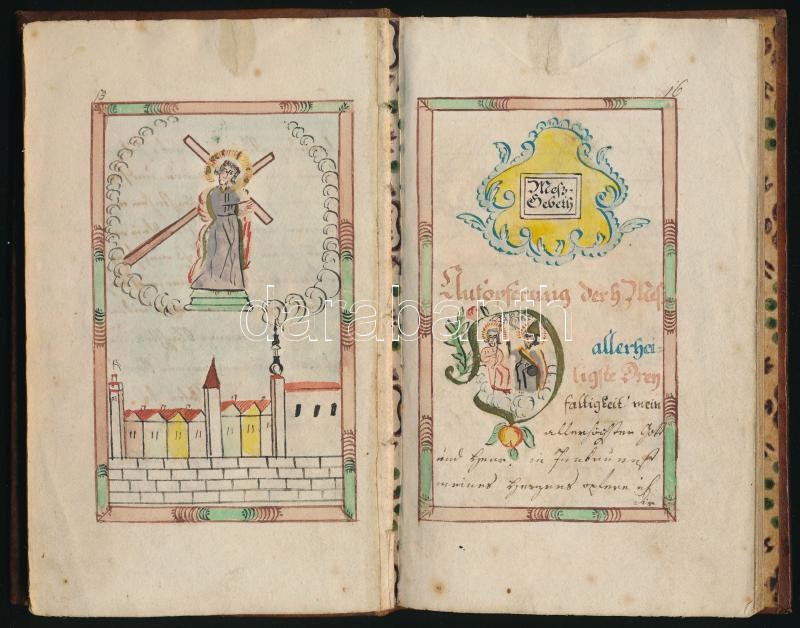 13
16
Meß-
Gebeth
Aufopferung der h Meß
allerhei-
ligste Drey
faltigkeit mein
allerhöchster Gott
und Herr, in Innbrunst
meines Herzens opfere ich
dir
darabanth